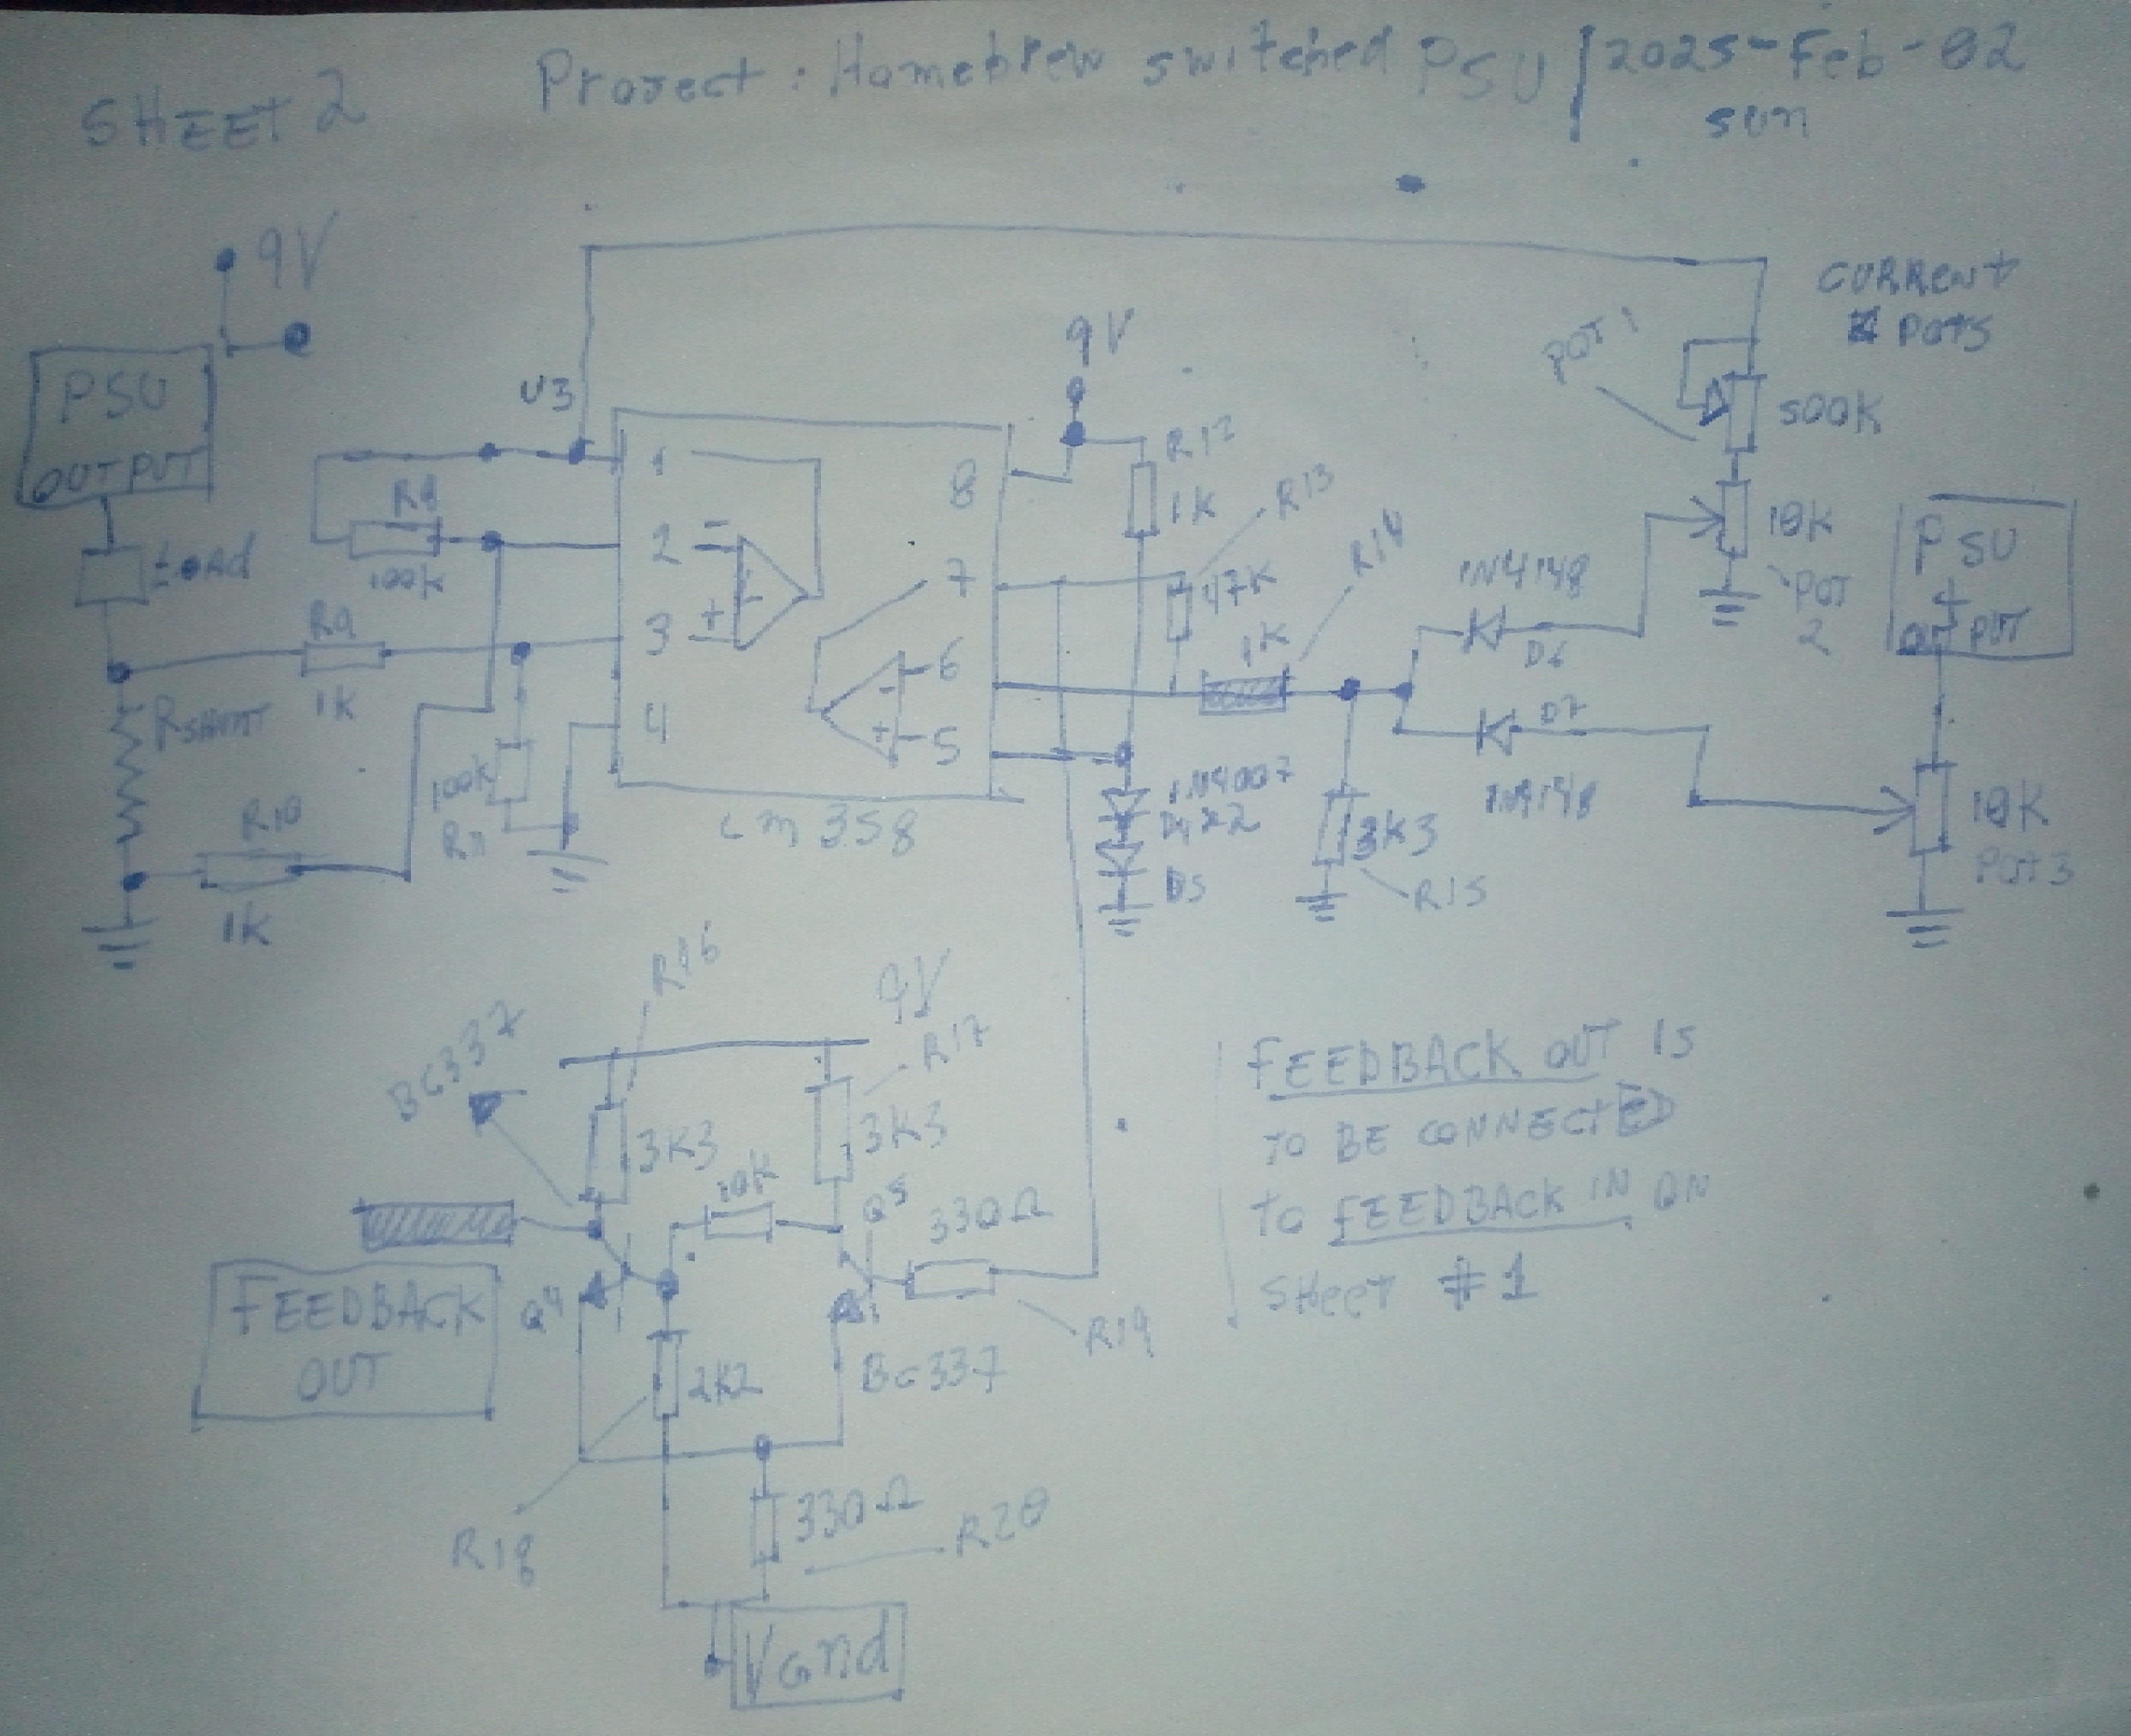 SHEET 2
Project: Homebrew switched PSU | 2025-Feb-02
sun
9V
PSU
OUTPUT
LOAd
RSHUNT
R9
1K
R10
1K
R8
100k
100k
U3
1
2
3
4
8
7
6
5
LM358
9V
R12
1K
R13
47K
R14
1K
1N4007
x2
D4
D5
3K3
R15
1N4148
D6
D7
1N4148
CURRENT
POTS
POT 1
500K
10K
POT
2
PSU
OUTPUT
10K
POT3
BC337
R16
9V
R17
3K3
3K3
10K
Q5
330Ω
R19
BC337
Q4
FEEDBACK
OUT
2K2
R18
330Ω
R20
VGnd
FEEDBACK OUT IS
TO BE CONNECTED
TO FEEDBACK IN ON
SHeeT #1